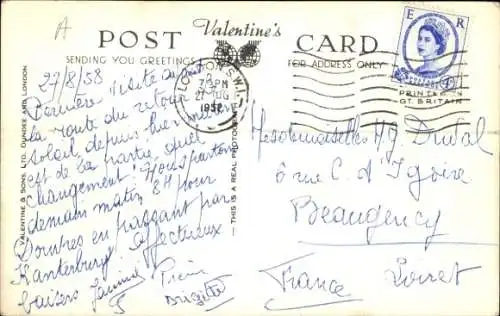 A
POST CARD
Valentine's
SENDING YOU GREETINGS
FOR ADDRESS ONLY
E R
PRINTED IN
GT. BRITAIN
LONDON S.W.1.
7 PM
1958
VALENTINE & SONS, LTD. DUNDEE AND LONDON.
THIS IS A REAL PHOTOGRAPH
27/8/58
Dernière visite
la route du retour
soleil depuis hier
est de la partie, quel
changement! Nous partons
demain matin, 28 pour
Douvres en passant par
Kanterbury Affectueux
baisers
Pierre
Brigitte
Mesdemoiselles
6 rue C. d'Ygoire
Beaugency
France Loiret